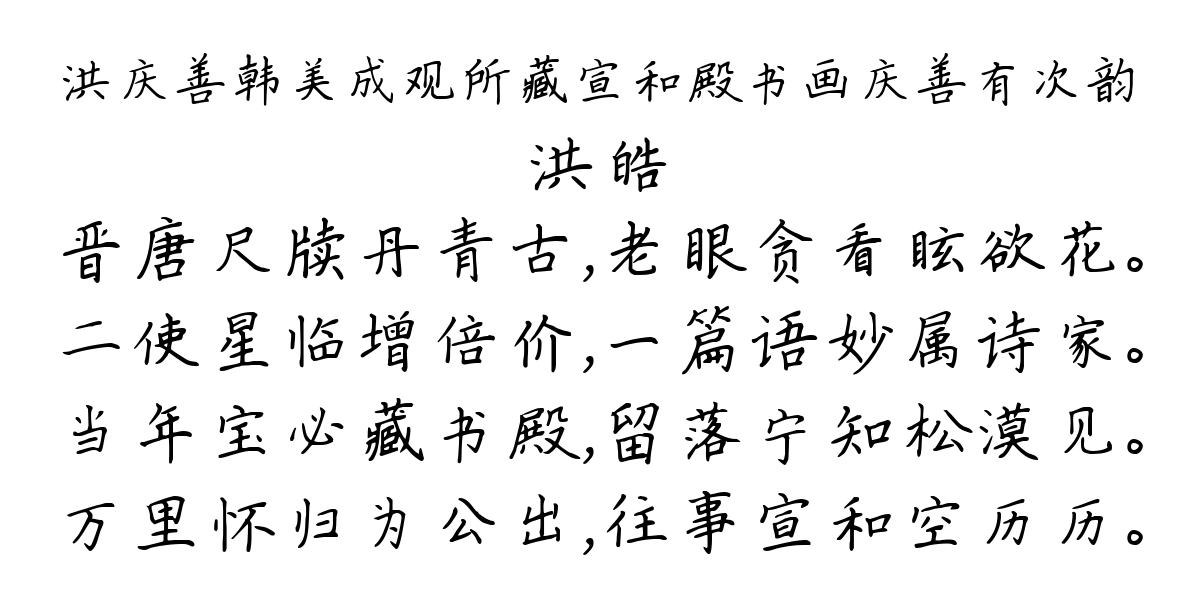 洪庆善韩美成观所藏宣和殿书画庆善有次韵
洪皓
晋唐尺牍丹青古,老眼贪看眩欲花。
二使星临增倍价,一篇语妙属诗家。
当年宝必藏书殿,留落宁知松漠见。
万里怀归为公出,往事宣和空历历。